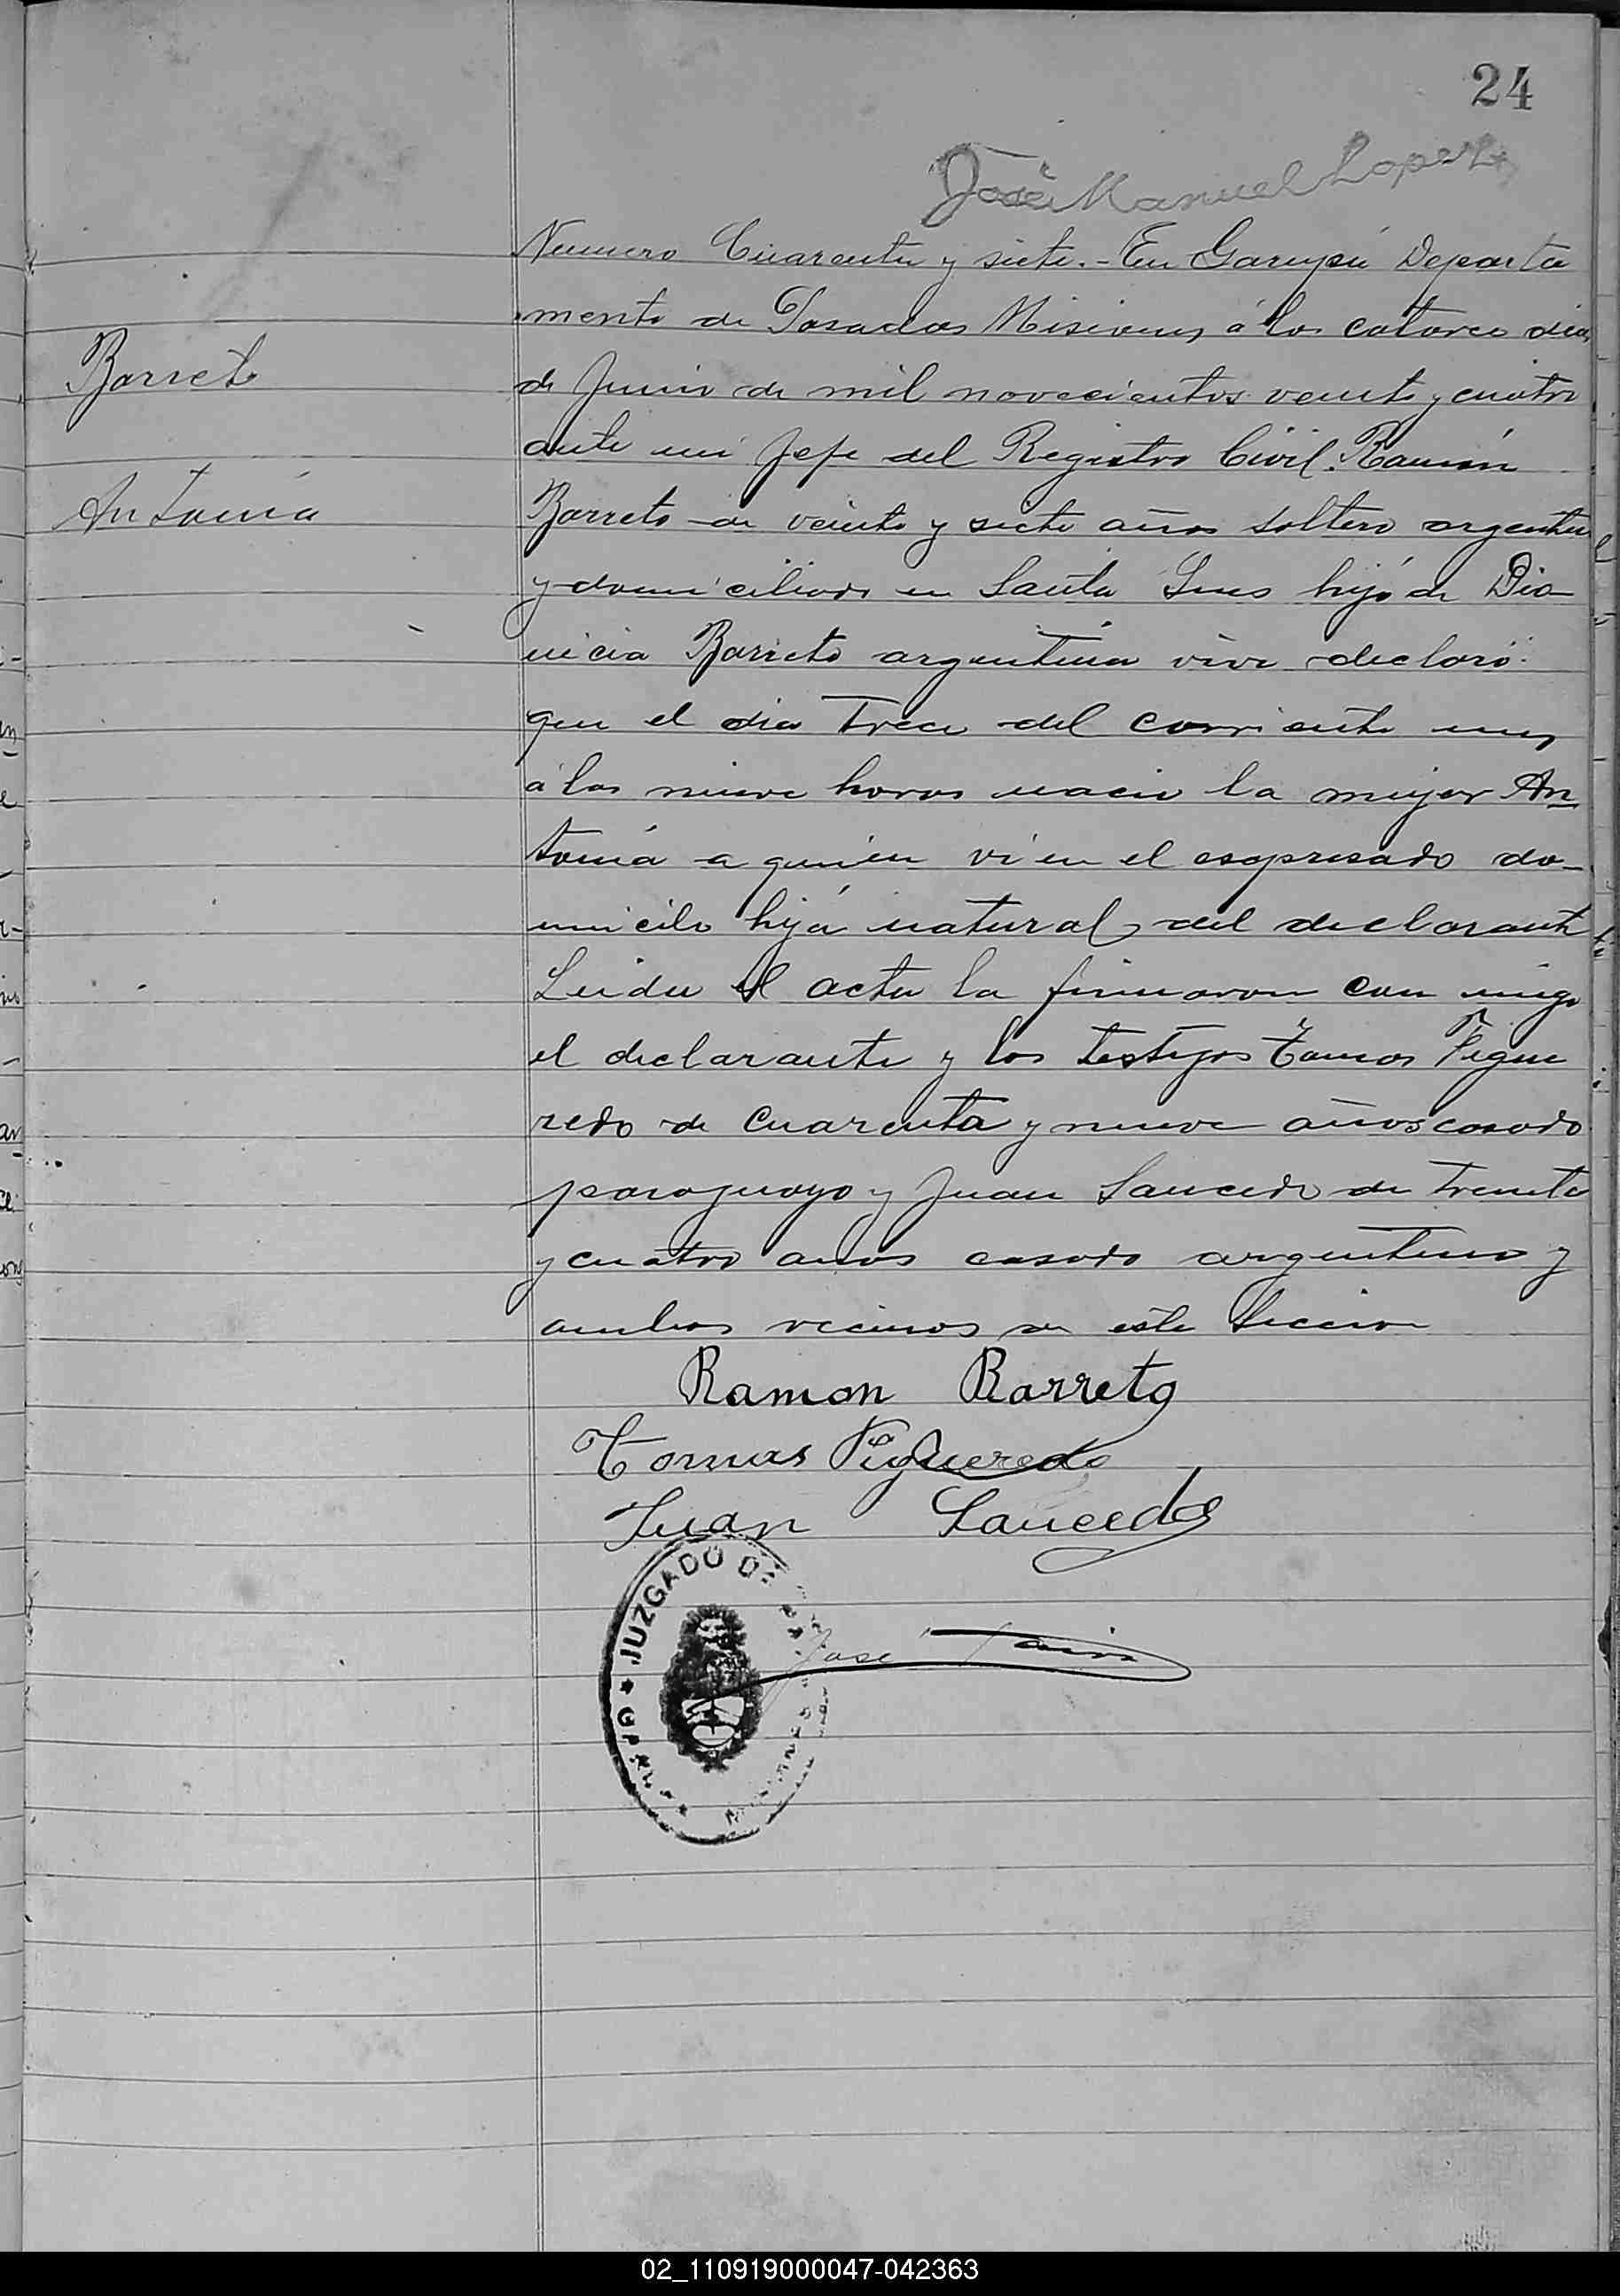 24
José Manuel Lopez
Numero Cuarenta y siete.- En Garupá Departa
mento de Posadas Misiones á los catorce dias
Barreto
de Junio de mil novecientos veinte y cuatro
ante mi Jefe del Registro Civil. Ramón
Antonia
Barreto de veinte y siete años soltero argentino
y domiciliado en Santa Ines hijo de Dio
nicia Barreto argentina vive declaró
que el dia Trece del corriente mes
á las nueve horas nacio la mujer An
tonia a quien vi en el esopresado do-
micilo hija natural del declarante
Leida el acta la firmaron con migo
el declarante y los testigos Tomas Figue
redo de cuarenta y nueve años casado
paraguayo y Juan Saucedo de treinta
y cuatro anos casado argentino y
ambos vecinos de esta seccion
Ramon Barreto
Tomas Figueredo
Juan Saucedo
JUZGADO DE
José
02_110919000047-042363